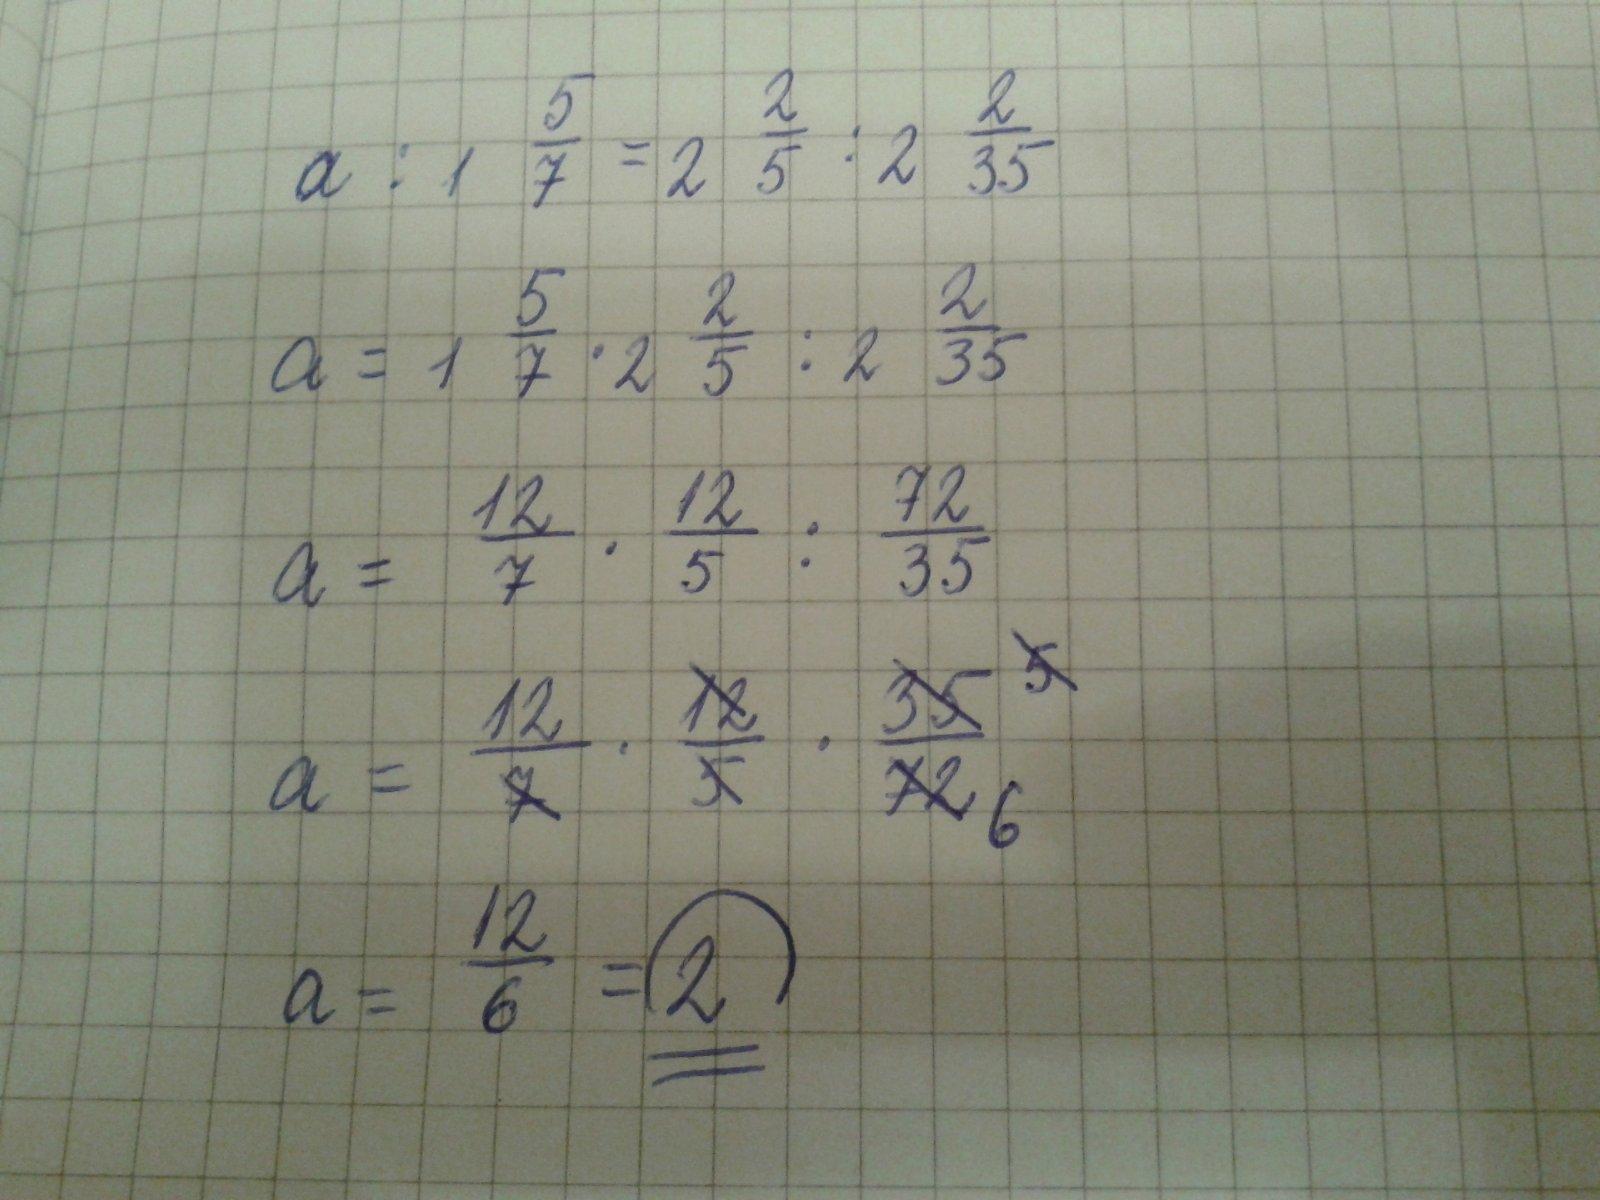 a : 1 5/7 = 2 2/5 : 2 2/35
a = 1 5/7 · 2 2/5 : 2 2/35
a = 12/7 · 12/5 : 72/35
a = 12/7 · 12/5 · 35/72 5 6
a = 12/6 = 2